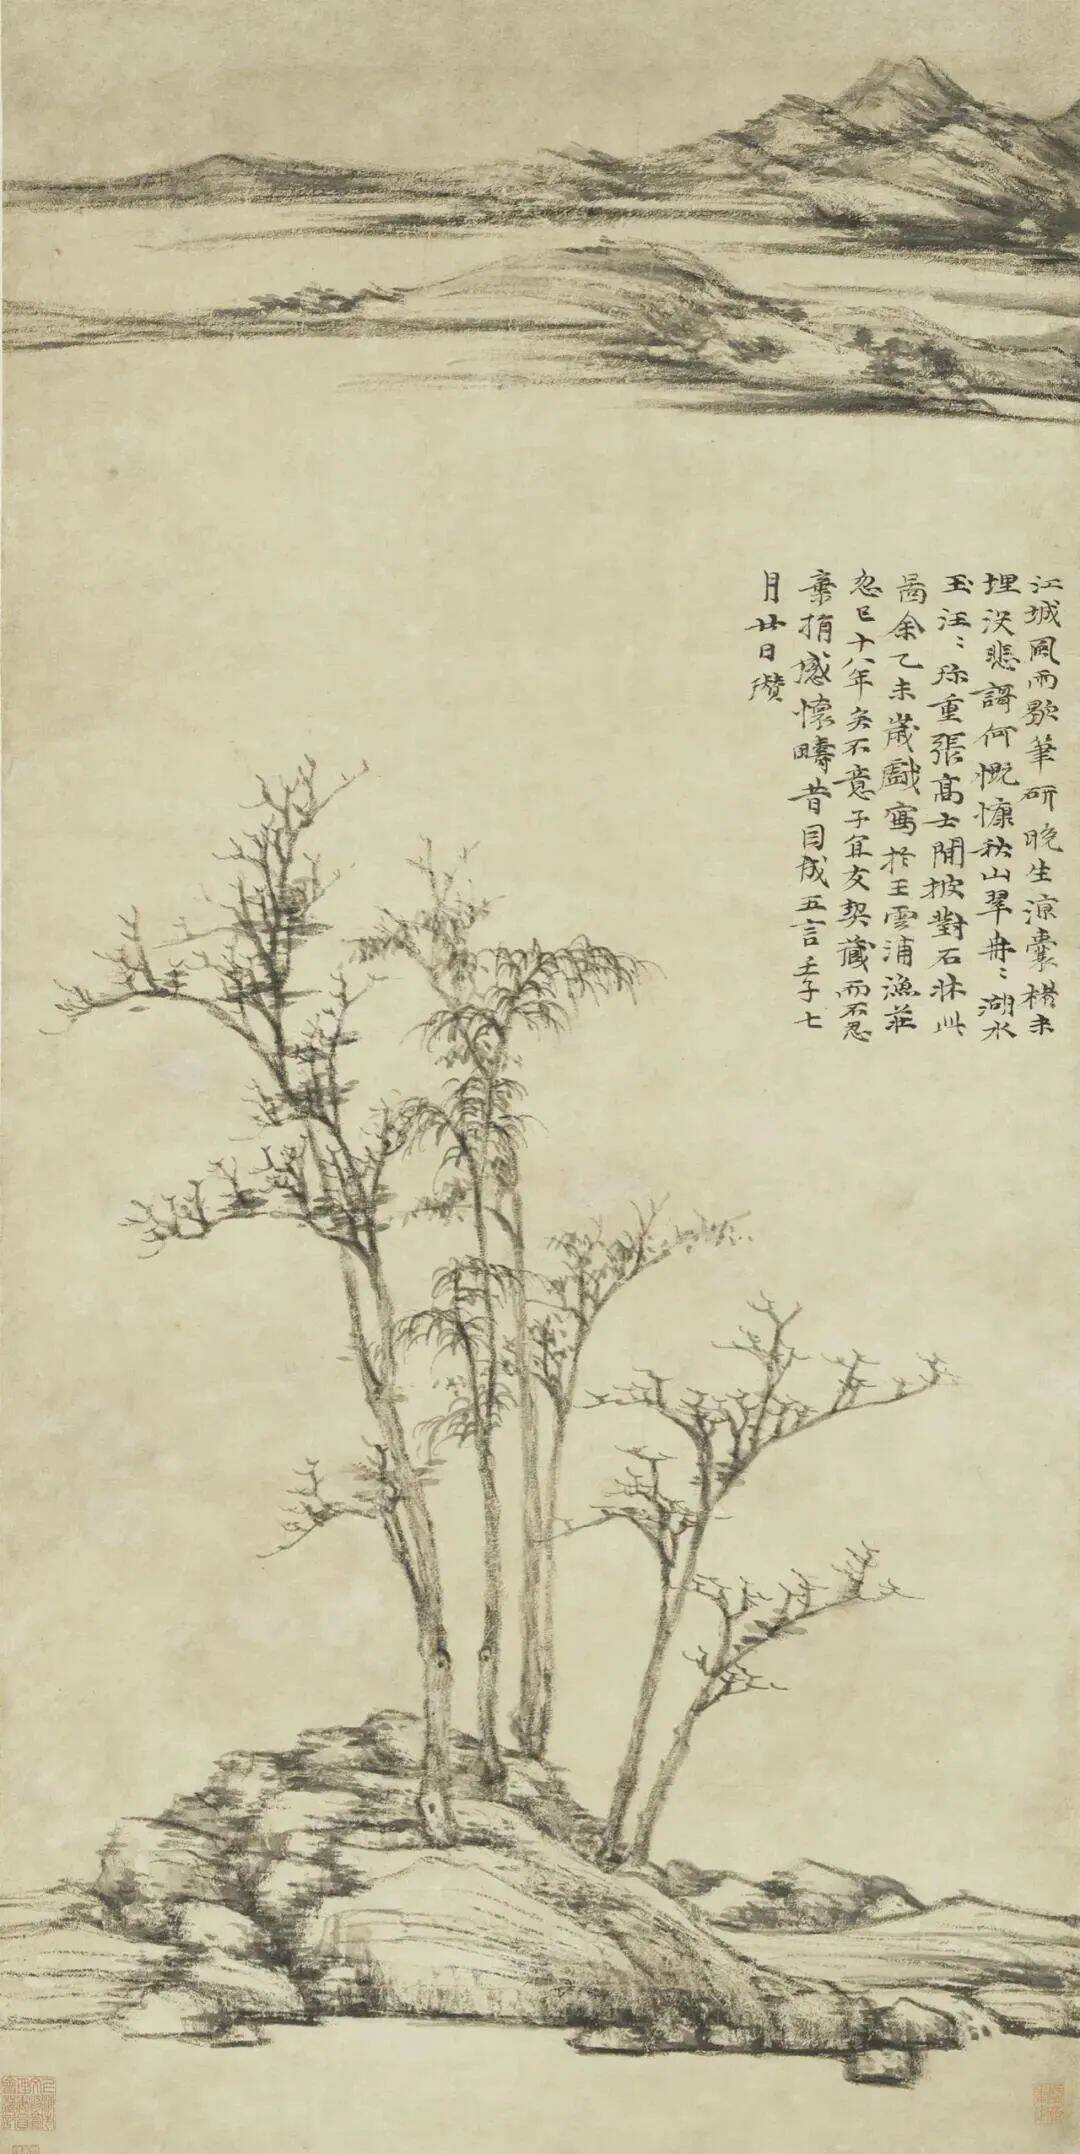 江城風雨歇筆研晚生涼囊楮未
埋没悲謌何慨慷秋山翠冉〻湖水
玉汪〻珍重張高士閒披對石牀此
啚余乙未歲戲寫於王雲浦漁莊
忽已十八年矣不意子宜友契藏而不忍
棄捐感懷疇昔因成五言壬子七
月廿日瓚